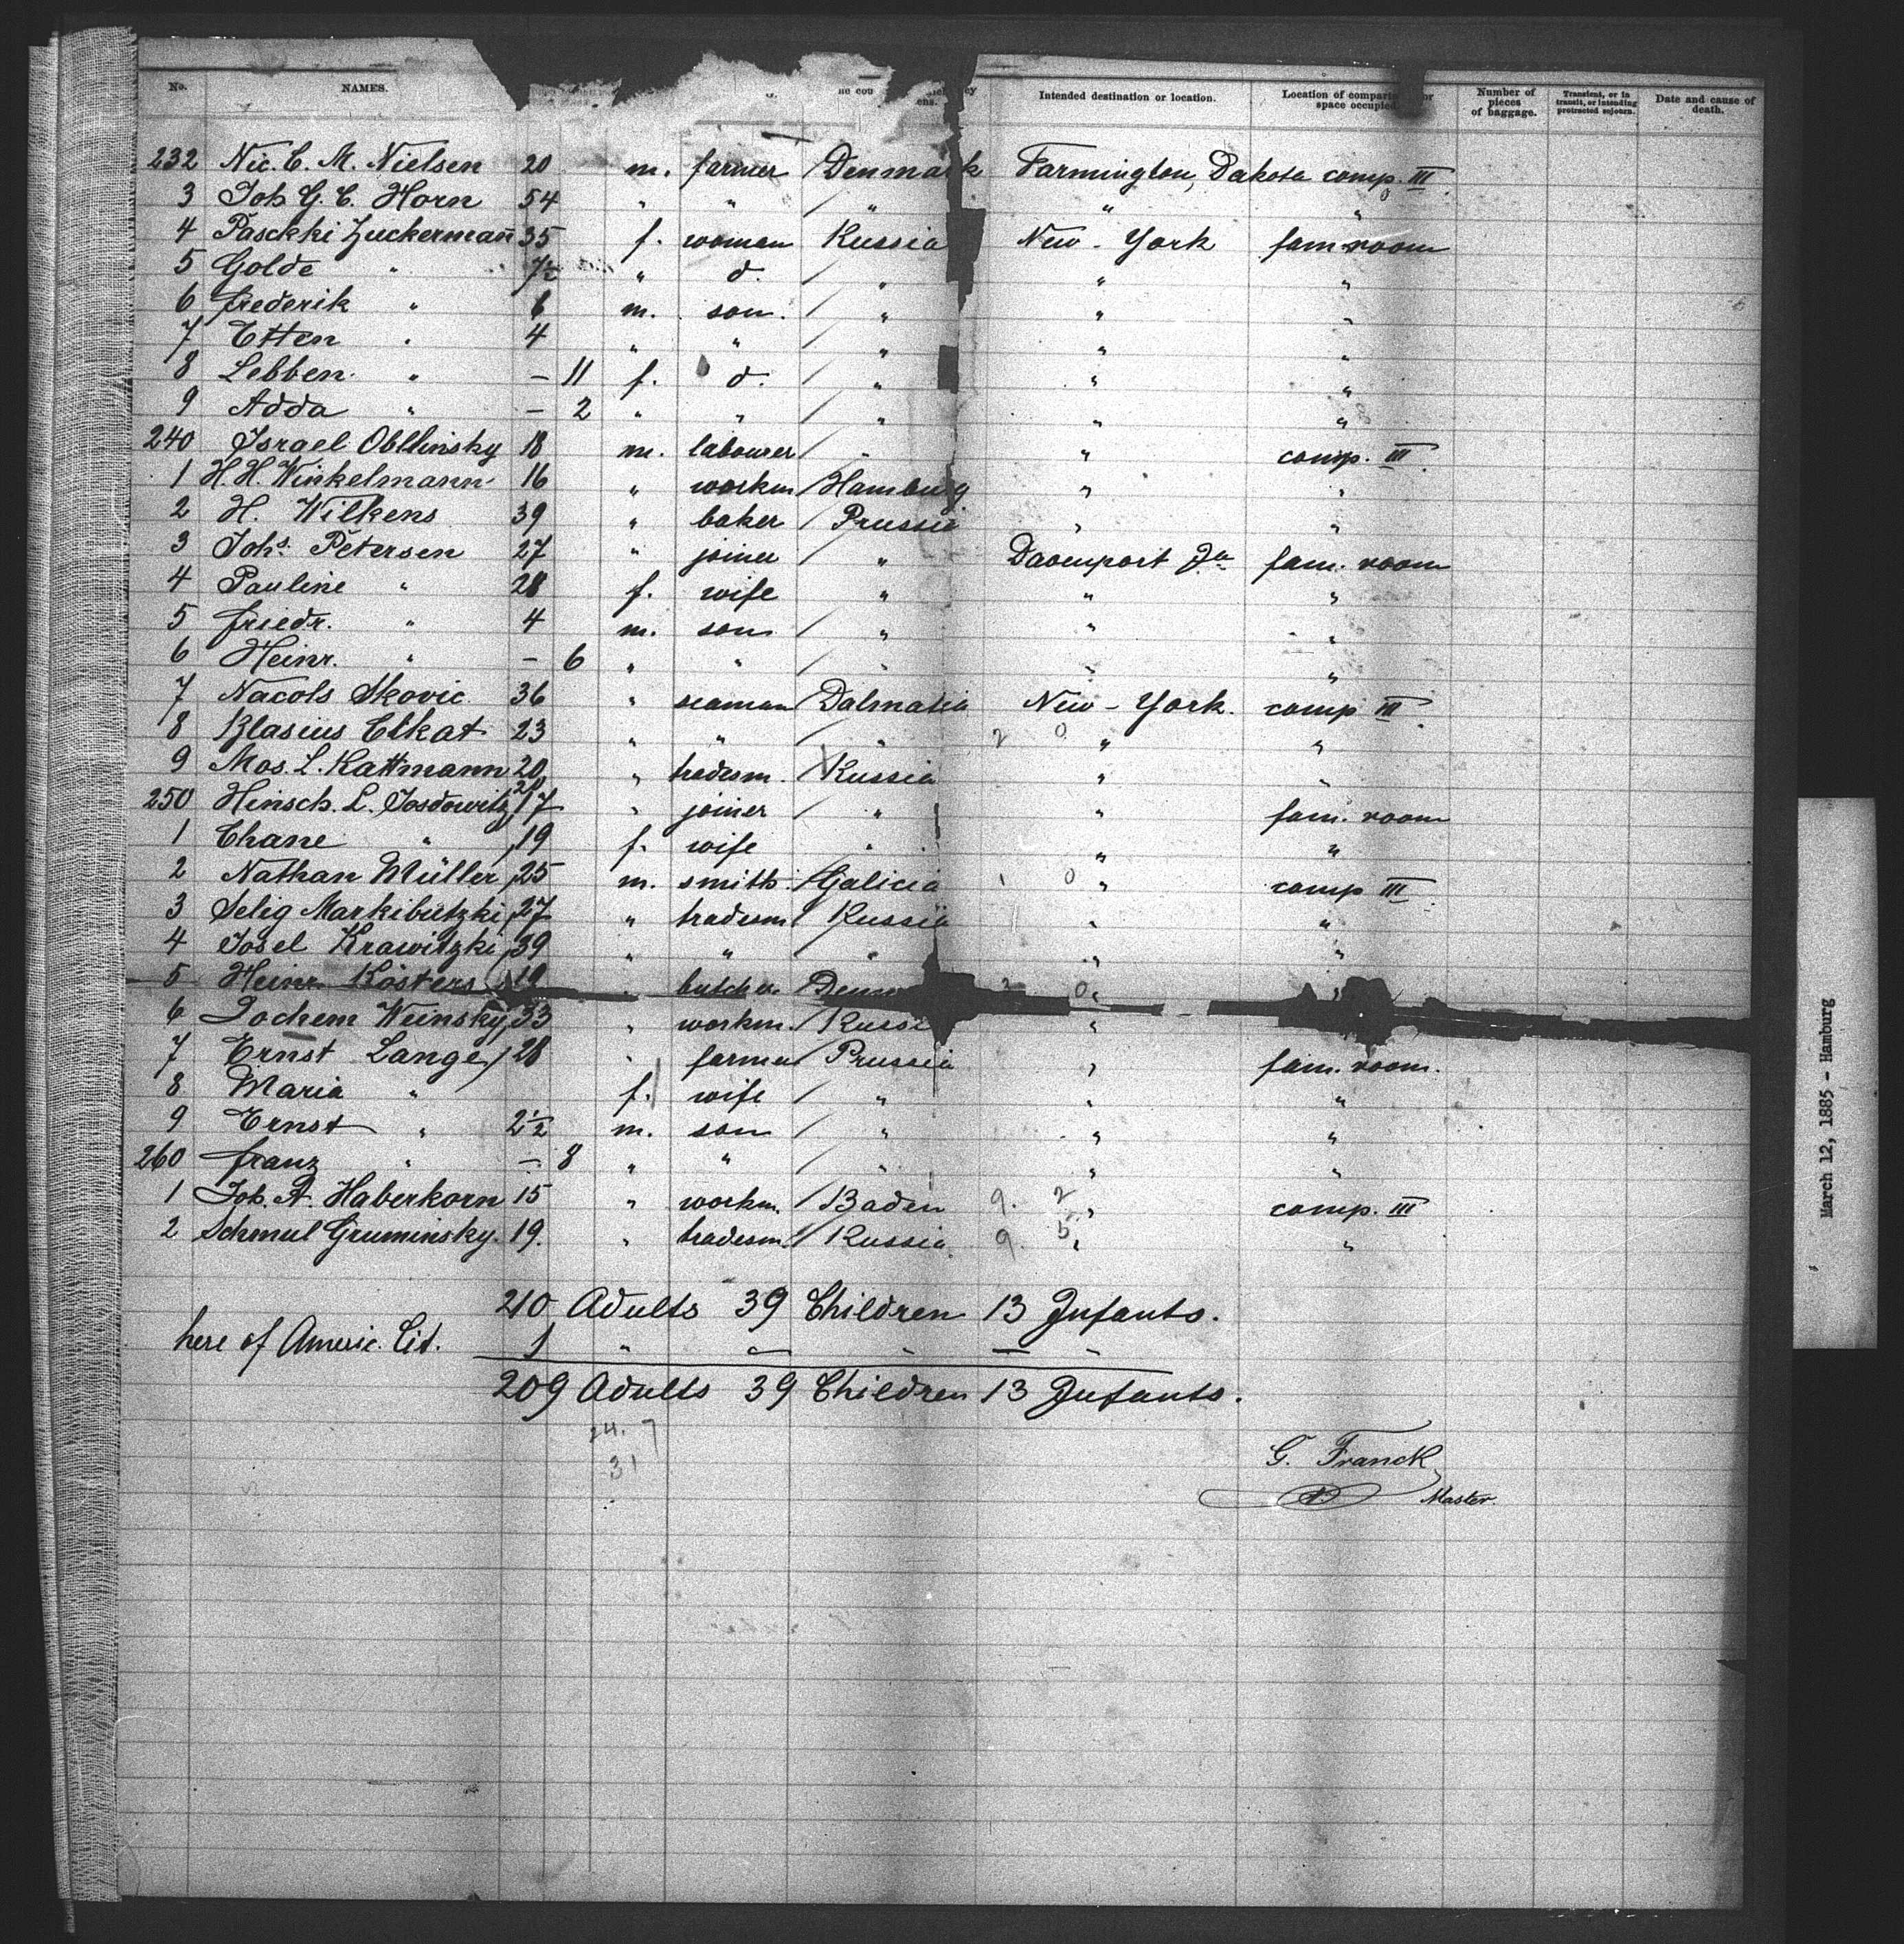 No. NAMES. Intended destination or location. Location of compart or space occupied Number of pieces of baggage. Transient, or in transit, or intending protracted sojourn. Date and cause of death.
232 Nic. C. M. Nielsen 20 m. farmer Denmark Farmington, Dakota comp. III
3 Joh G. C. Horn 54 " " / " " "
4 Paschki Zuckermann 35 f. woman Russia New-York fam room
5 Golde " 7½ " d. / " " "
6 Frederik " 6 m. son. / " " "
7 Etten " 4 " " " " "
8 Lebben " - 11 f. d. / " " "
9 Adda " - 2 " " / " " "
240 Israel Obllinsky 18 m. labourer / " " comp. III
1 H. H. Winkelmann 16 " workm / Hamburg " "
2 H. Wilkens 39 " baker / Prussia " "
3 Johs. Petersen 27 " joiner / " Davenport Ja. fam. room
4 Pauline " 28 f. wife " " "
5 Friedr. " 4 m. son / " " "
6 Heinr. " - 6 " " / " " "
7 Nacols Skovic 36 " seaman Dalmatia New-York. comp III
8 Blasius Elkat 23 " " / " 2 0 " "
9 Mos. L. Kattmann 20 " tradesm. Russia " "
250 Hinsch. L. Josdowitz 17 " joiner / " " fam. room
1 Chane " 19 f. wife " " "
2 Nathan Müller 25 m. smith / Galicia 1 0 " comp III
3 Selig Markibutzki 27 " tradesm / Russia " "
4 Josel Krawitzki 39 " " " " "
5 Heinr Kösters 19 " butcher Denm 0 " "
6 Jochem Weinsky 33 " workm. / Russi "
7 Ernst Lange 28 " farmer Prussia " fam. room.
8 Maria " f. wife / " " "
9 Ernst " 2½ m. son / " " "
260 Franz " - 8 " " / " " "
1 Joh. A. Haberkorn 15 " workm. / Baden 9. 2 " comp. III
2 Schmul Gruminsky. 19. " tradesm. / Russia 9. 5 " "
210 Adults 39 Children 13 Infants.
here of Americ. Cit. 1 " — " — "
209 Adults 39 Children 13 Infants.
24. 7
31
G. Franck
Master.
March 12, 1885 - Hamburg